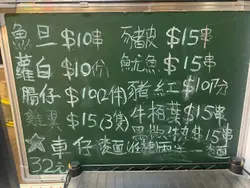 魚旦 $10串 豬皮 $15串
蘿白 $10份 魷魚 $15串
腸仔 $10(2件) 豬紅 $10份
雞翼 $15(3隻) 牛栢葉 $15串
$15串
☆車仔麵
32